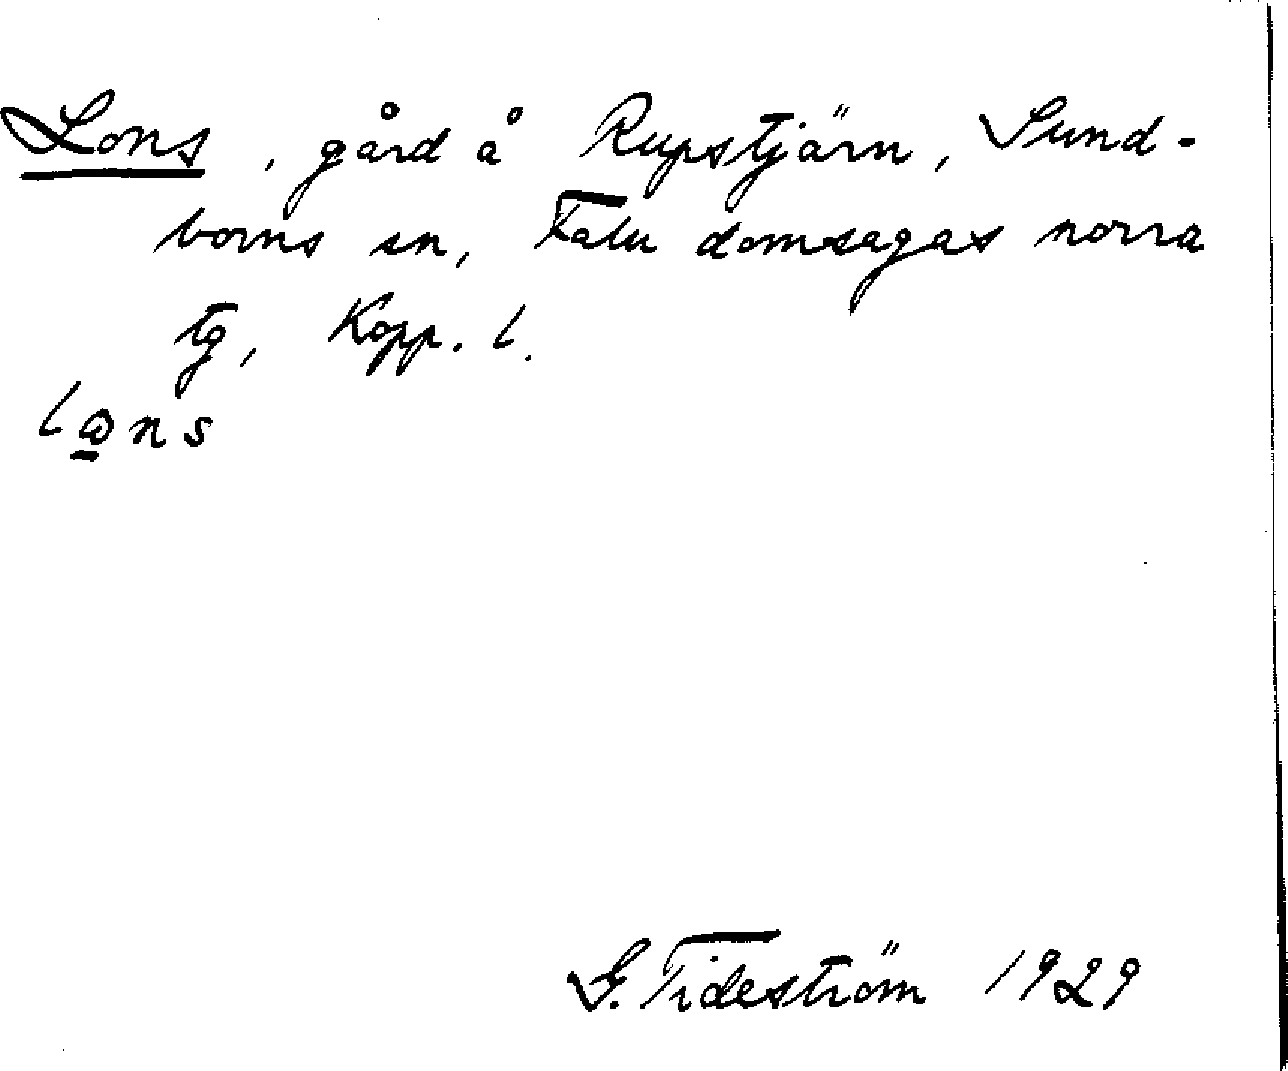 Lons, gård å Rupstjärn, Sund-
borns sn, Falu domsagas norra
tg, Kopp. l.
lⱺns
G. Tideström 1929